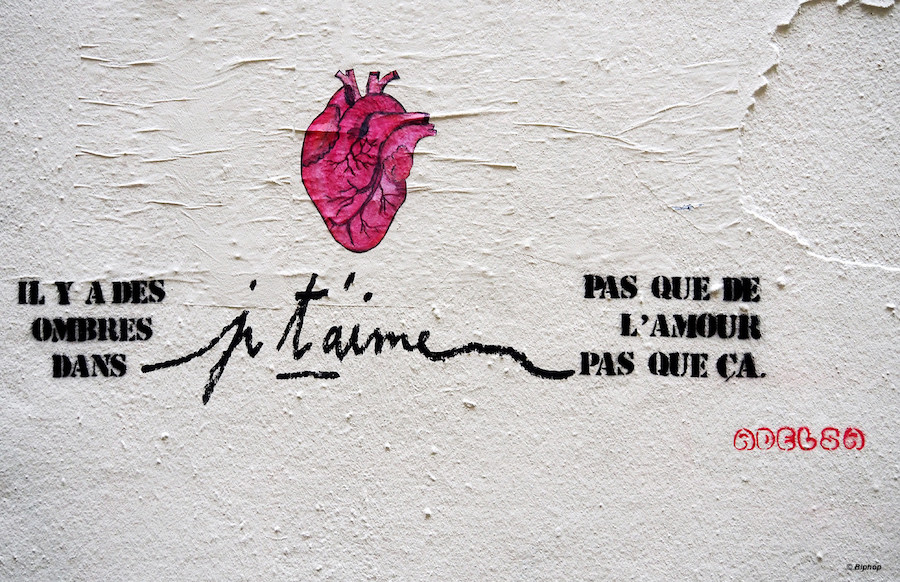 IL Y A DES
OMBRES
DANS
j't'aime
PAS QUE DE
L'AMOUR
PAS QUE ÇA.
ADELSA
© Biphop